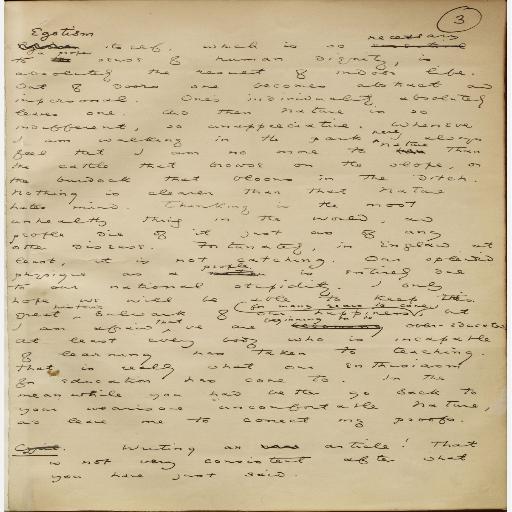 3
Egotism necessary
itself, which is so essential
to a proper sense of human dignity, is
absolutely the result of indoor life.
Out of doors one becomes abstract and
impersonal. One's individuality absolutely
leaves one. And then Nature is so
indifferent, so unappreciative. Whenever
I am walking in the park here, I always
feel that I am no more to Nature than
the cattle that browse on the slope, or
the burdock that blooms in the ditch.
Nothing is clearer than that Nature
hates mind. Thinking is the most
unhealthy thing in the world, and
people die of it just as of any
other disease. Fortunately, in England at
least, it is not catching. Our splendid
physique as a people is entirely due
to our national stupidity. I only
hope we will be able to keep this
great historic bulwark of our happiness for many years to come, but
I am afraid that we are beginning to be over-educated
at least every body who is incapable
of learning has taken to teaching.
That is really what our enthusiasm
for education has come to. In the
mean while you had better go back to
your wearisome uncomfortable Nature,
and leave me to correct my proofs.
Cyril. Writing an article! That
is not very consistent after what
you have just said.